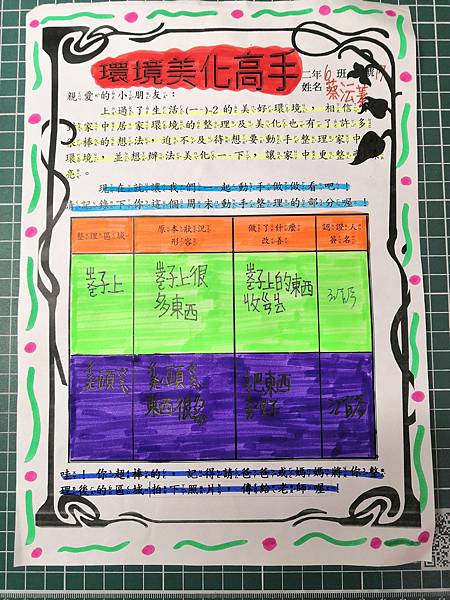 環境美化高手
二年6班 號17
姓名 蔡沄蓁
親愛的小朋友：
上過了生活(一)-2的美好環境，相信
家中居家環境的整理及美化也有了許多
棒的想法，迫不及待想要動手整理家中
環境，並想辦法美化一下，讓家中更整
亮。
現在就讓我們一起動手做做看吧！
記錄下你這個周末動手整理的部分喔！
整理區域 原本狀況形容 做了什麼改善 認證人簽名
桌子上 桌子上很多東西 桌子上的東西收
東西很多 把東西
哇！你超棒的！記得請爸爸或媽媽將你整
理後的區域拍下照片，傳給老師喔！